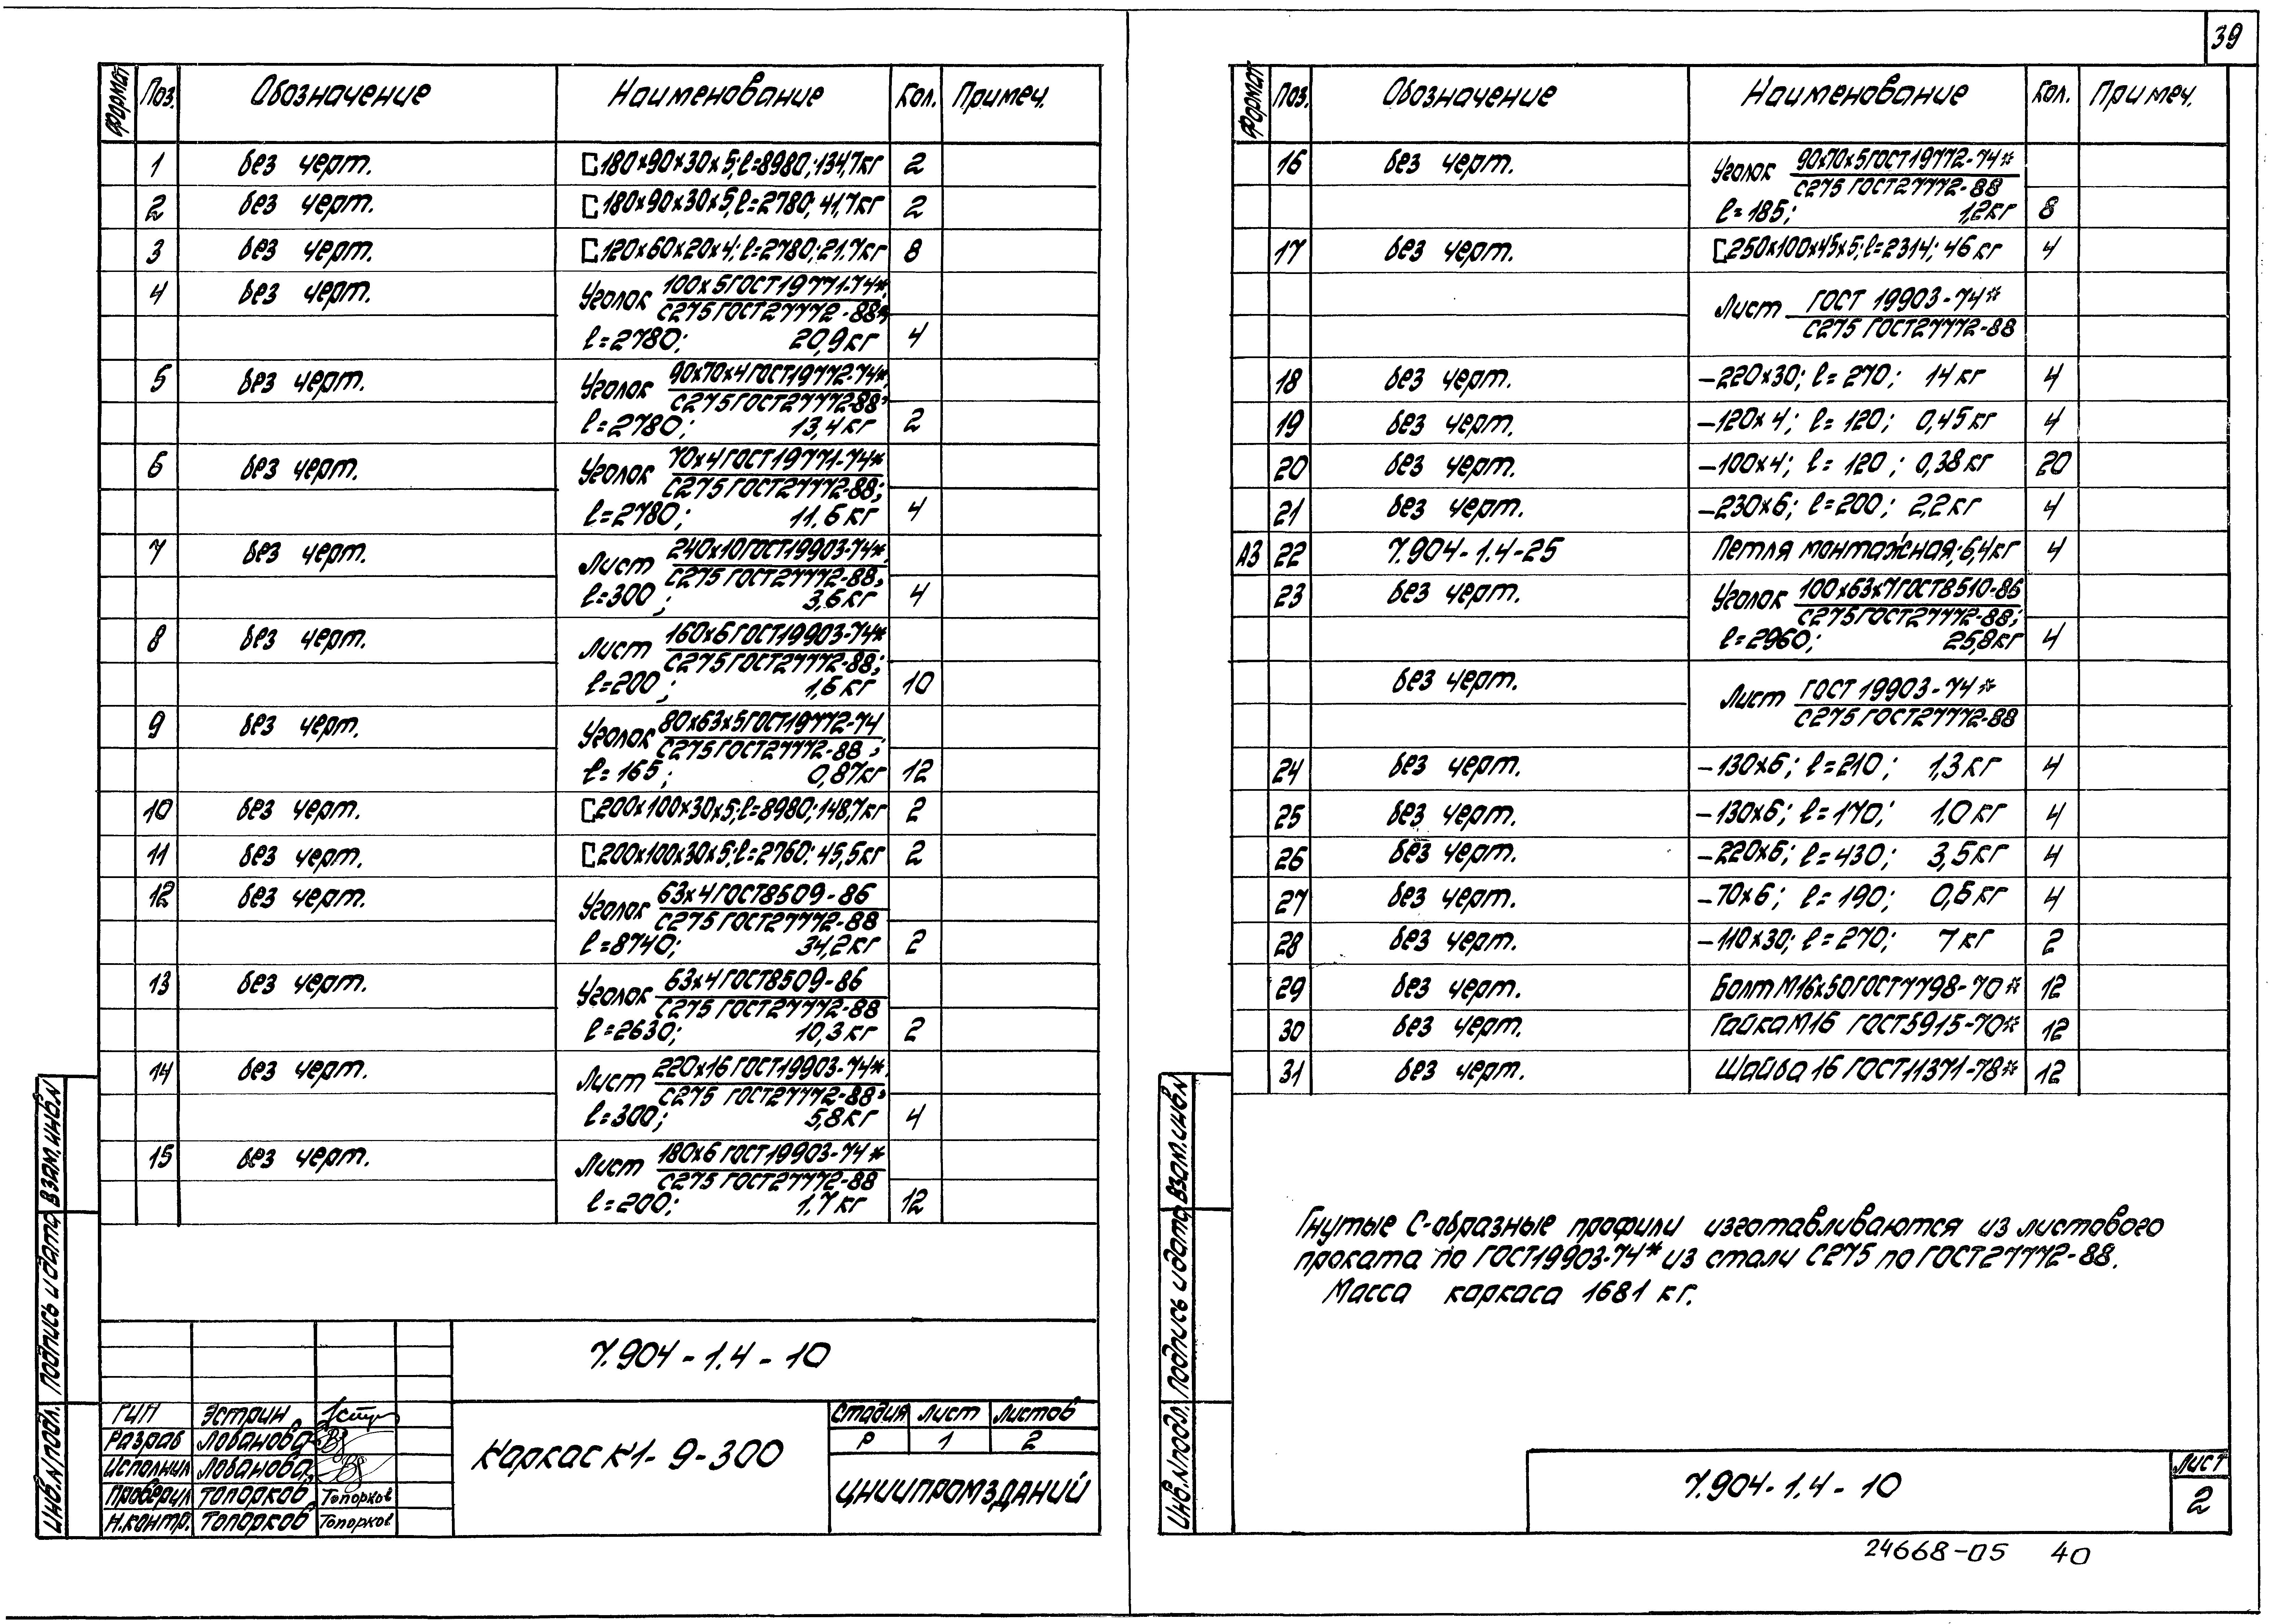 39
Формат Поз. Обозначение Наименование Кол. Примеч.
1 без черт. [180×90×30×5; ℓ=8980; 134,7кг 2
2 без черт. [180×90×30×5; ℓ=2780; 41,7кг 2
3 без черт. [120×60×20×4; ℓ=2780; 21,7кг 8
4 без черт. Уголок 100×5ГОСТ19771-74*
С275ГОСТ27772-88;
ℓ=2780; 20,9кг 4
5 без черт. Уголок 90×70×4ГОСТ19772-74*
С275ГОСТ27772-88;
ℓ=2780; 13,4кг 2
6 без черт. Уголок 70×4ГОСТ19771-74*
С275ГОСТ27772-88;
ℓ=2780; 11,6кг 4
7 без черт. Лист 240×10ГОСТ19903-74*
С275ГОСТ27772-88;
ℓ=300; 3,6кг 4
8 без черт. Лист 160×6ГОСТ19903-74*
С275ГОСТ27772-88;
ℓ=200; 1,6кг 10
9 без черт. Уголок 80×63×5ГОСТ19772-74
С275ГОСТ27772-88;
ℓ=165; 0,87кг 12
10 без черт. [200×100×30×5; ℓ=8980; 148,7кг 2
11 без черт. [200×100×30×5; ℓ=2760; 45,5кг 2
12 без черт. Уголок 63×4ГОСТ8509-86
С275ГОСТ27772-88
ℓ=8740; 34,2кг 2
13 без черт. Уголок 63×4ГОСТ8509-86
С275ГОСТ27772-88
ℓ=2630; 10,3кг 2
14 без черт. Лист 220×16ГОСТ19903-74*
С275ГОСТ27772-88;
ℓ=300; 5,8кг 4
15 без черт. Лист 180×6ГОСТ19903-74*
С275ГОСТ27772-88
ℓ=200; 1,7кг 12
7.904-1.4-10
ГИП Эстрин
Разраб Лобанова
Исполнил Лобанова
Проверил Топорков Топорков
Н.контр. Топорков Топорков
Каркас К1-9-300
Стадия Лист Листов
Р 1 2
ЦНИИПРОМЗДАНИЙ
Инв.N подл. Подпись и дата Взам.инв.N
Формат Поз. Обозначение Наименование Кол. Примеч.
16 без черт. Уголок 90×70×5ГОСТ19772-74*
С275ГОСТ27772-88
ℓ=185; 1,2кг 8
17 без черт. [250×100×45×5; ℓ=2314; 46кг 4
Лист ГОСТ 19903-74*
С275 ГОСТ27772-88
18 без черт. -220×30; ℓ=270; 14кг 4
19 без черт. -120×4; ℓ=120; 0,45кг 4
20 без черт. -100×4; ℓ=120; 0,38кг 20
21 без черт. -230×6; ℓ=200; 2,2кг 4
А3 22 7.904-1.4-25 Петля монтажная; 6,4кг 4
23 без черт. Уголок 100×63×7ГОСТ8510-86
С275ГОСТ27772-88;
ℓ=2960; 25,8кг 4
без черт. Лист ГОСТ 19903-74*
С275ГОСТ27772-88
24 без черт. -130×6; ℓ=210; 1,3кг 4
25 без черт. -130×6; ℓ=170; 1,0кг 4
26 без черт. -220×6; ℓ=430; 3,5кг 4
27 без черт. -70×6; ℓ=190; 0,6кг 4
28 без черт. -110×30; ℓ=270; 7кг 2
29 без черт. Болт М16×50ГОСТ7798-70* 12
30 без черт. Гайка М16 ГОСТ5915-70* 12
31 без черт. Шайба 16 ГОСТ11371-78* 12
Гнутые С-образные профили изготавливаются из листового
проката по ГОСТ19903-74* из стали С275 по ГОСТ27772-88.
Масса каркаса 1681 кг.
7.904-1.4-10
Лист
2
Инв.N подл. Подпись и дата Взам.инв.N
24668-05 40